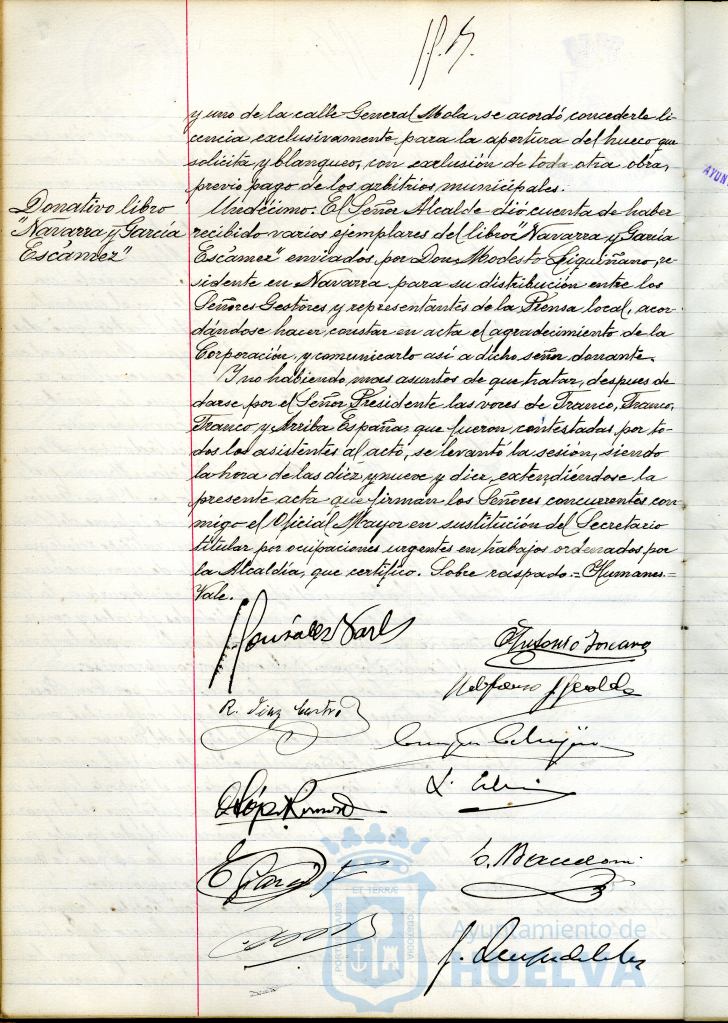 y uno de la calle General Mola, se acordó concederle li-
cencia exclusivamente para la apertura del hueco que
solicita y blanqueo, con exclusión de toda otra obra,
previo pago de los arbitrios municipales.
Donativo libro
"Navarra y García
Escámez"
Undécimo. El Señor Alcalde dió cuenta de haber
recibido varios ejemplares del libro "Navarra y García
Escámez" enviados por Don Modesto, re-
sidente en Navarra para su distribución entre los
Señores Gestores y representantes de la Prensa local, acor-
dándose hacer constar en acta el agradecimiento de la
Corporación, y comunicarlo así a dicho señor donante.
Y no habiendo mas asuntos de que tratar, despues de
darse por el Señor Presidente las voces de Franco, Franco,
Franco y Arriba España, que fueron contestadas por to-
dos los asistentes al acto, se levantó la sesión, siendo
la hora de las diez y nueve y diez, extendiéndose la
presente acta que firman los Señores concurrentes con-
migo el Oficial Mayor en sustitución del Secretario
titular por ocupaciones urgentes en trabajos ordenados por
la Alcaldía, que certifico. Sobre raspado = Humanes =
Vale.
González
Antonio
R. Díaz Castro
López
E. García
ET TERRÆ
PORTUS MARIS
CUSTODIA
Ayuntamiento de
HUELVA
AYUN